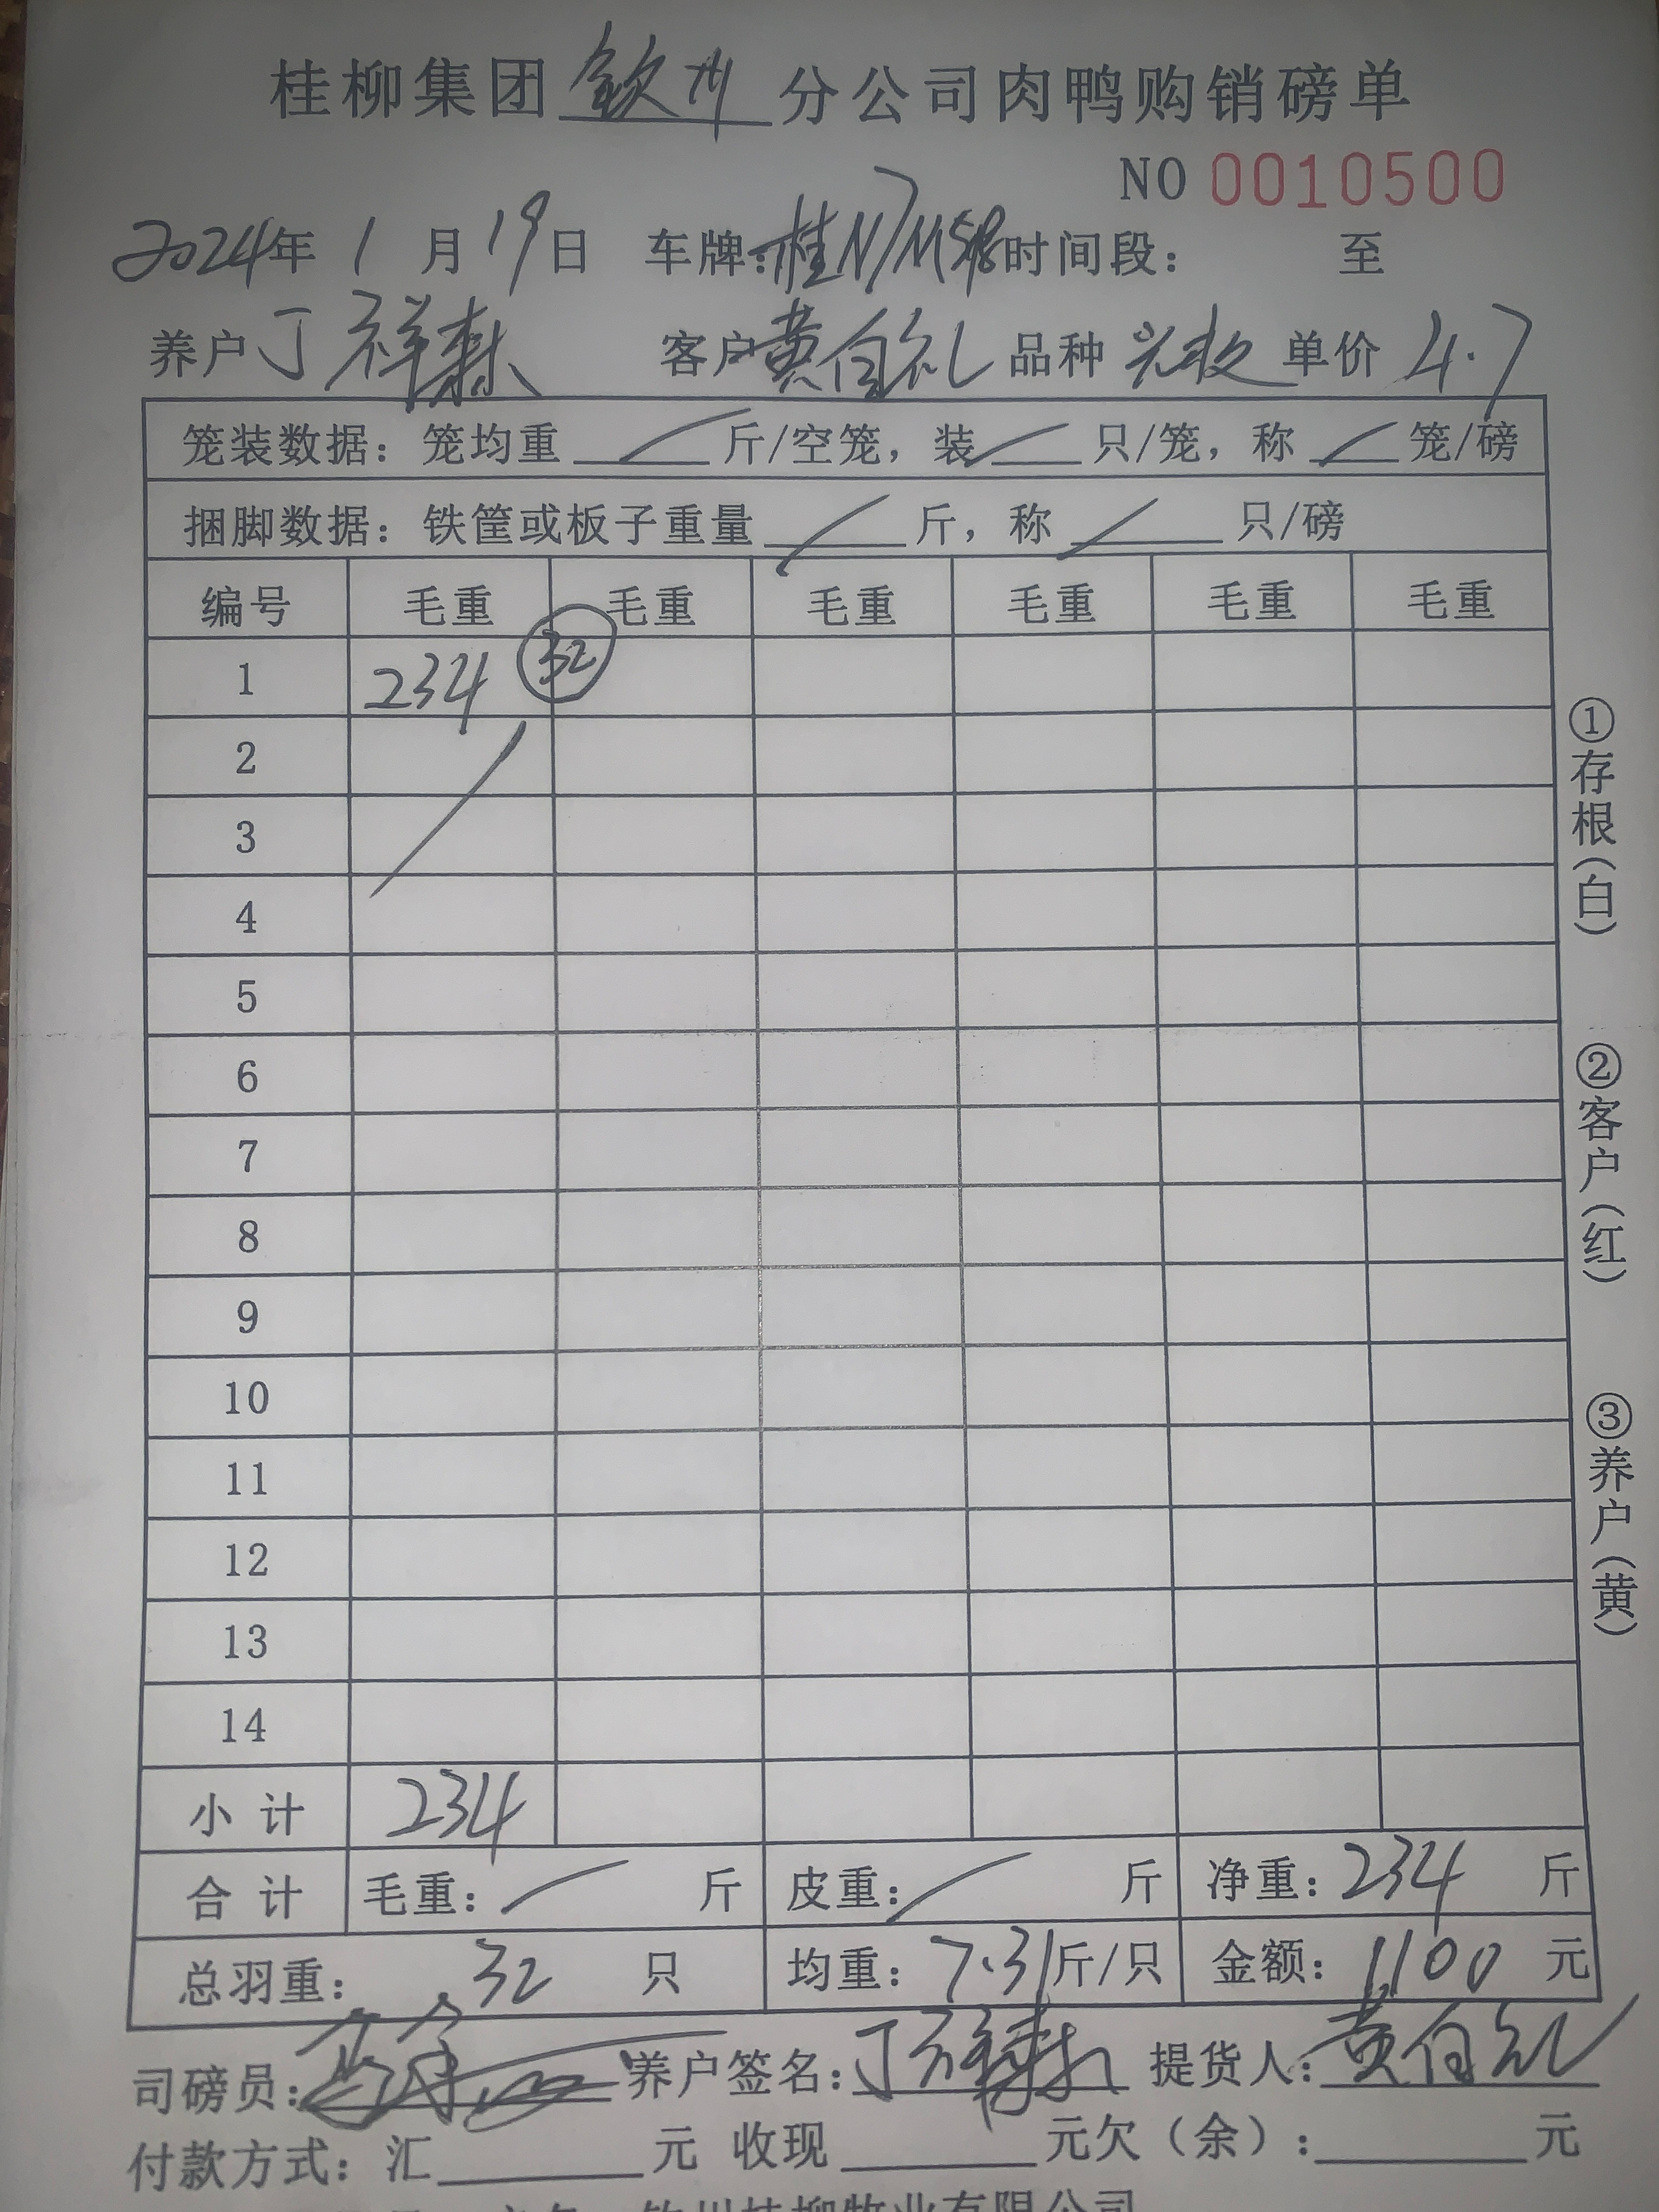 桂柳集团钦州分公司肉鸭购销磅单
NO 0010500
2024年 1 月 19日 车牌: 时间段: 至
养户 丁祥 客户 黄自礼 品种 单价 4.7
笼装数据: 笼均重 斤/空笼, 装 只/笼, 称 笼/磅
捆脚数据: 铁筐或板子重量 斤, 称 只/磅
编号 毛重 毛重 毛重 毛重 毛重 毛重
1 234 32
2
3
4
5
6
7
8
9
10
11
12
13
14
小计 234
合计 毛重: 斤 皮重: 斤 净重: 234 斤
总羽重: 32 只 均重: 7.31斤/只 金额: 1100 元
司磅员: 养户签名: 丁祥 提货人: 黄自礼
付款方式: 汇 元 收现 元欠(余): 元
钦州桂柳牧业有限公司
①存根(白)
②客户(红)
③养户(黄)